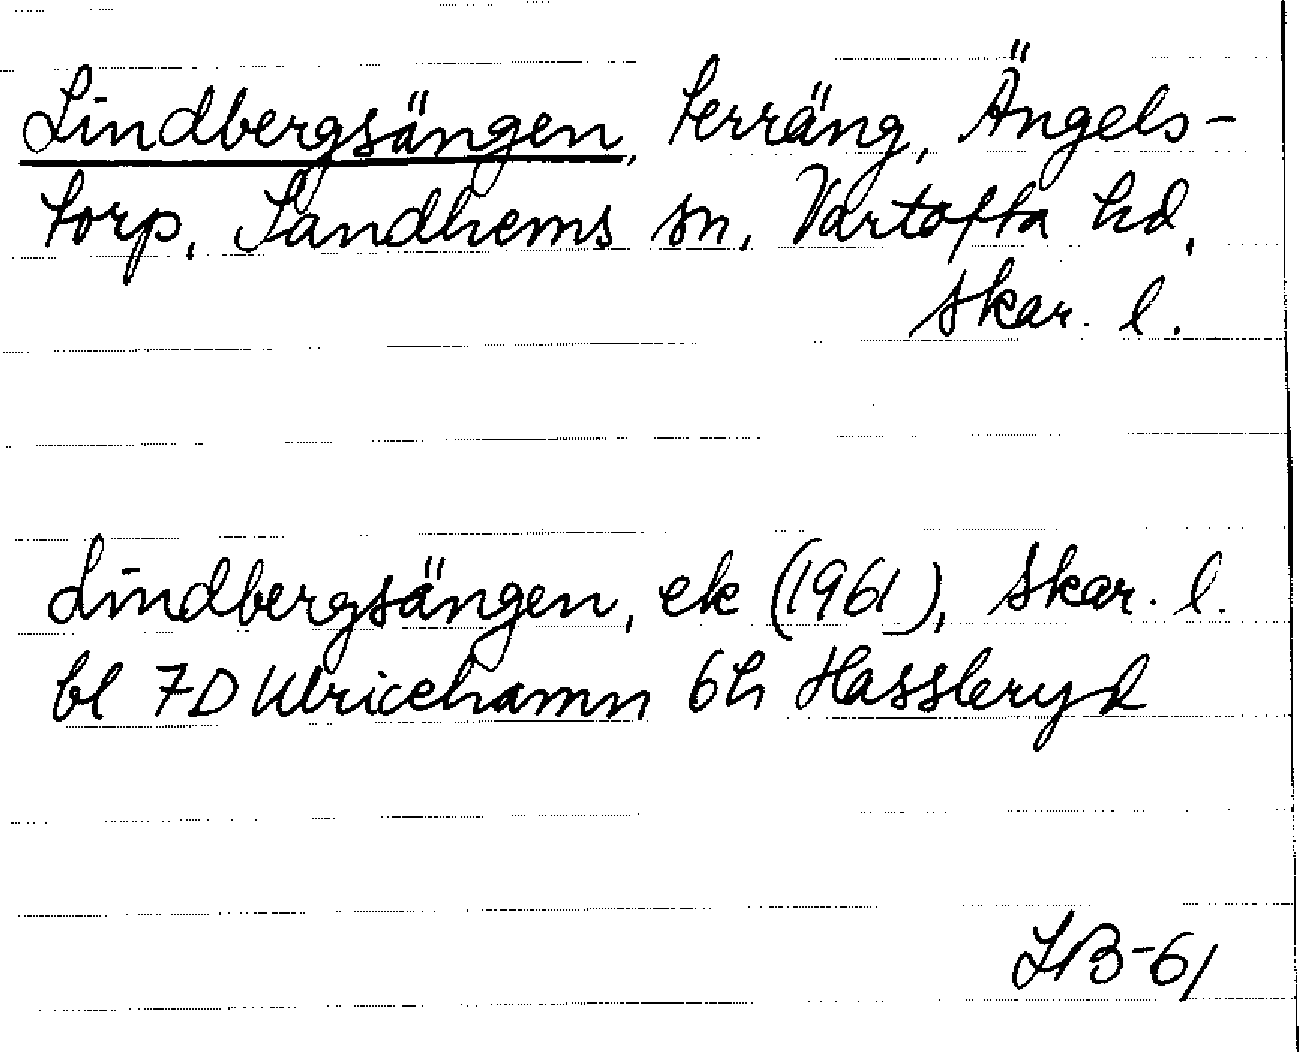 Lindbergsängen, terräng, Ängels-
torp, Sandhems sn, Vartofta hd,
Skar. l.
Lindbergsängen, ek (1961), Skar. l.
bl 7D Ulricehamn 6h Hassleryd
LB-61